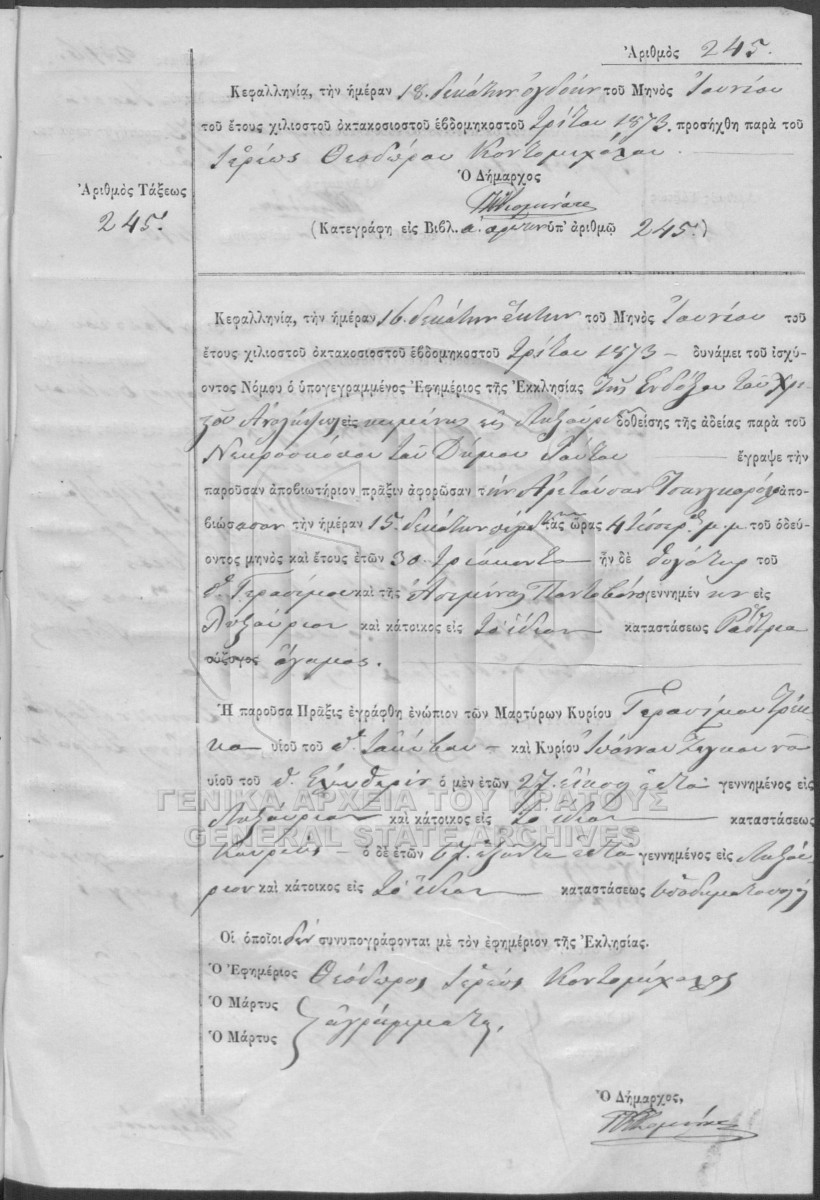 Ἀριθμὸς 245.
Κεφαλληνίᾳ, τὴν ἡμέραν 18. δεκάτην ὀγδόην τοῦ Μηνὸς Ἰουνίου
τοῦ ἔτους χιλιοστοῦ ὀκτακοσιοστοῦ ἑβδομηκοστοῦ τρίτου 1873. προσήχθη παρὰ τοῦ
Ἱερέως Θεοδώρου Κοντομιχάλου
Ὁ Δήμαρχος
Ἀριθμὸς Τάξεως
245.
(Κατεγράφη εἰς Βιβλ. α. ὑπ' ἀριθμῷ 245.)
Κεφαλληνίᾳ, τὴν ἡμέραν 16. δεκάτην ἕκτην τοῦ Μηνὸς Ἰουνίου τοῦ
ἔτους χιλιοστοῦ ὀκτακοσιοστοῦ ἑβδομηκοστοῦ τρίτου 1873 — δυνάμει τοῦ ἰσχύ-
οντος Νόμου ὁ ὑπογεγραμμένος Ἐφημέριος τῆς Ἐκκλησίας τῆς Ἐνδόξου τοῦ Χρι-
στοῦ Ἀναλήψεως κειμένης εἰς Ληξούριον δοθείσης τῆς ἀδείας παρὰ τοῦ
Νεκροσκόπου τοῦ Δήμου τούτου ἔγραψε τὴν
παροῦσαν ἀποβιωτήριον πρᾶξιν ἀφορῶσαν τὴν Ἀρετοῦσαν ἀπο-
βιώσασαν τὴν ἡμέραν 15. δεκάτην τὰς ὥρας 4 μ.μ τοῦ ὁδεύ-
οντος μηνὸς καὶ ἔτους ἐτῶν 30. τριάκοντα ἦν δὲ θυγάτηρ τοῦ
π Γερασίμου καὶ τῆς γεννημένην εἰς
Ληξούριον καὶ κάτοικος εἰς τὸ ἴδιον καταστάσεως
σύζυγος ἄγαμος.
Ἡ παροῦσα Πρᾶξις ἐγράφθη ἐνώπιον τῶν Μαρτύρων Κυρίου Γερασίμου
υἱοῦ τοῦ π Ἰακώβου — καὶ Κυρίου Ἰωάννου
υἱοῦ τοῦ π ὁ μὲν ἐτῶν 27. εἴκοσι ἑπτὰ γεννημένος εἰς
Ληξούριον καὶ κάτοικος εἰς τὸ ἴδιον καταστάσεως
Κουρεύς — ὁ δὲ ἐτῶν 67. ἑξήντα ἑπτὰ γεννημένος εἰς Ληξού-
ριον καὶ κάτοικος εἰς τὸ ἴδιον καταστάσεως ὑποδηματοποιός
ΓΕΝΙΚΑ ΑΡΧΕΙΑ ΤΟΥ ΚΡΑΤΟΥΣ
GENERAL STATE ARCHIVES
Οἱ ὁποῖοι δὲν συνυπογράφονται μὲ τὸν ἐφημέριον τῆς Ἐκλησίας.
Ὁ Ἐφημέριος Θεόδωρος Ἱερεὺς Κοντομίχαλος
Ὁ Μάρτυς
ἀγράμματοι.
Ὁ Μάρτυς
Ὁ Δήμαρχος,